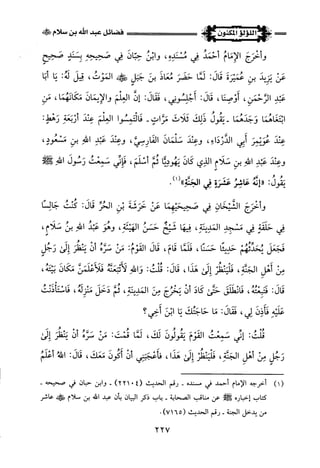 اللؤلؤ المكنون
فضائل عبد الله بن سلام ﵁
وأَخرَج الإمَامُ أحْمَدُ في مُسْنَدِهِ، وابْنُ حِبَّانَ في صَحِيحِهِ بِسَنَدٍ صَحِيحٍ
عَنْ يَزِيدَ بنِ عُمَيْرَةَ قَالَ: لَمَّا حَضَرَ مُعَاذَ بنَ جَبَلٍ ﵁ المَوْتُ، قِيلَ لَهُ: يَا أبَا
عَبْدِ الرَّحْمَنِ، أَوْصِنَا، قَالَ: أَجْلِسُونِي، فَقَالَ: إنَّ العِلْمَ والإيمَانَ مَكَانَهُمَا، مَنِ
ابْتَغَاهُمَا وَجَدَهُمَا ـ يَقُولُ ذَلِكَ ثَلَاثَ مَرَّاتٍ ـ فَالْتَمِسُوا العِلْمَ عِنْدَ أرْبَعَةِ رَهْطٍ:
عِنْدَ عُوَيْمِرٍ أَبِي الدَّرْدَاءِ، وعِنْدَ سَلْمَانَ الفَارِسِيِّ، وعِنْدَ عَبْدِ اللهِ بنِ مَسْعُودٍ،
وعِنْدَ عَبْدِ اللهِ بنِ سَلَامٍ الذِي كَانَ يَهُودِيًّا ثُمَّ أسْلَمَ، فَإِنِّي سَمِعْتُ رَسُولَ اللهِ ﷺ
يَقُولُ: «إنَّهُ عَاشِرُ عَشَرَةٍ فِي الجَنَّةِ»(١).
وأَخرَج الشَّيْخَانِ فِي صَحِيحَيْهِمَا عَنْ خَرَشَةَ بنِ الحُرِّ قَالَ: كُنْتُ جَالِسًا
فِي حَلَقَةٍ فِي مَسْجِدِ المَدِينَةِ، فِيهَا شَيْخٌ حَسَنُ الهَيْئَةِ، وهُوَ عَبْدُ اللهِ بنُ سَلَامٍ،
فَجَعَلَ يُحَدِّثُهُمْ حَدِيثًا حَسَنًا، فَلَمَّا قَامَ، قَالَ القَوْمُ: مَنْ سَرَّهُ أنْ يَنْظُرَ إلَى رَجُلٍ
مِنْ أَهْلِ الجَنَّةِ، فَلْيَنْظُرْ إِلَى هَذَا، قَالَ: قُلْتُ: وَاللهِ لَأَتْبَعَنَّهُ فَلَأَعْلَمَنَّ مَكَانَ بَيْتِهِ،
قَالَ: فَتَبِعْتُهُ، فَانْطَلَقَ حَتَّى كَادَ أنْ يَخْرُجَ مِنَ المَدِينَةِ، ثُمَّ دَخَلَ مَنْزِلَهُ، فَاسْتَأْذَنْتُ
عَلَيْهِ فَأَذِنَ لِي، فَقَالَ: مَا حَاجَتُكَ يَا ابْنَ أَخِي؟
قُلْتُ: إِنِّي سَمِعْتُ القَوْمَ يَقُولُونَ لَكَ، لَمَّا قُمْتَ: مَنْ سَرَّهُ أنْ يَنْظُرَ إِلَى
رَجُلٍ مِنْ أَهْلِ الجَنَّةِ، فَلْيَنْظُرْ إِلَى هَذَا، فَأَعْجَبَنِي أَنْ أَكُونَ مَعَكَ، قَالَ: اللهُ أعْلَمُ
(١) أخرجه الإمام أحمد في مسنده ـ رقم الحديث (٢٢١٠٤) ـ وابن حبان في صحيحه ـ
كتاب إخباره ﷺ عن مناقب الصحابة ـ باب ذكر البيان بأن عبد الله بن سلام ﵁ عاشر
من يدخل الجنة ـ رقم الحديث (٧١٦٥).
٢٢٧